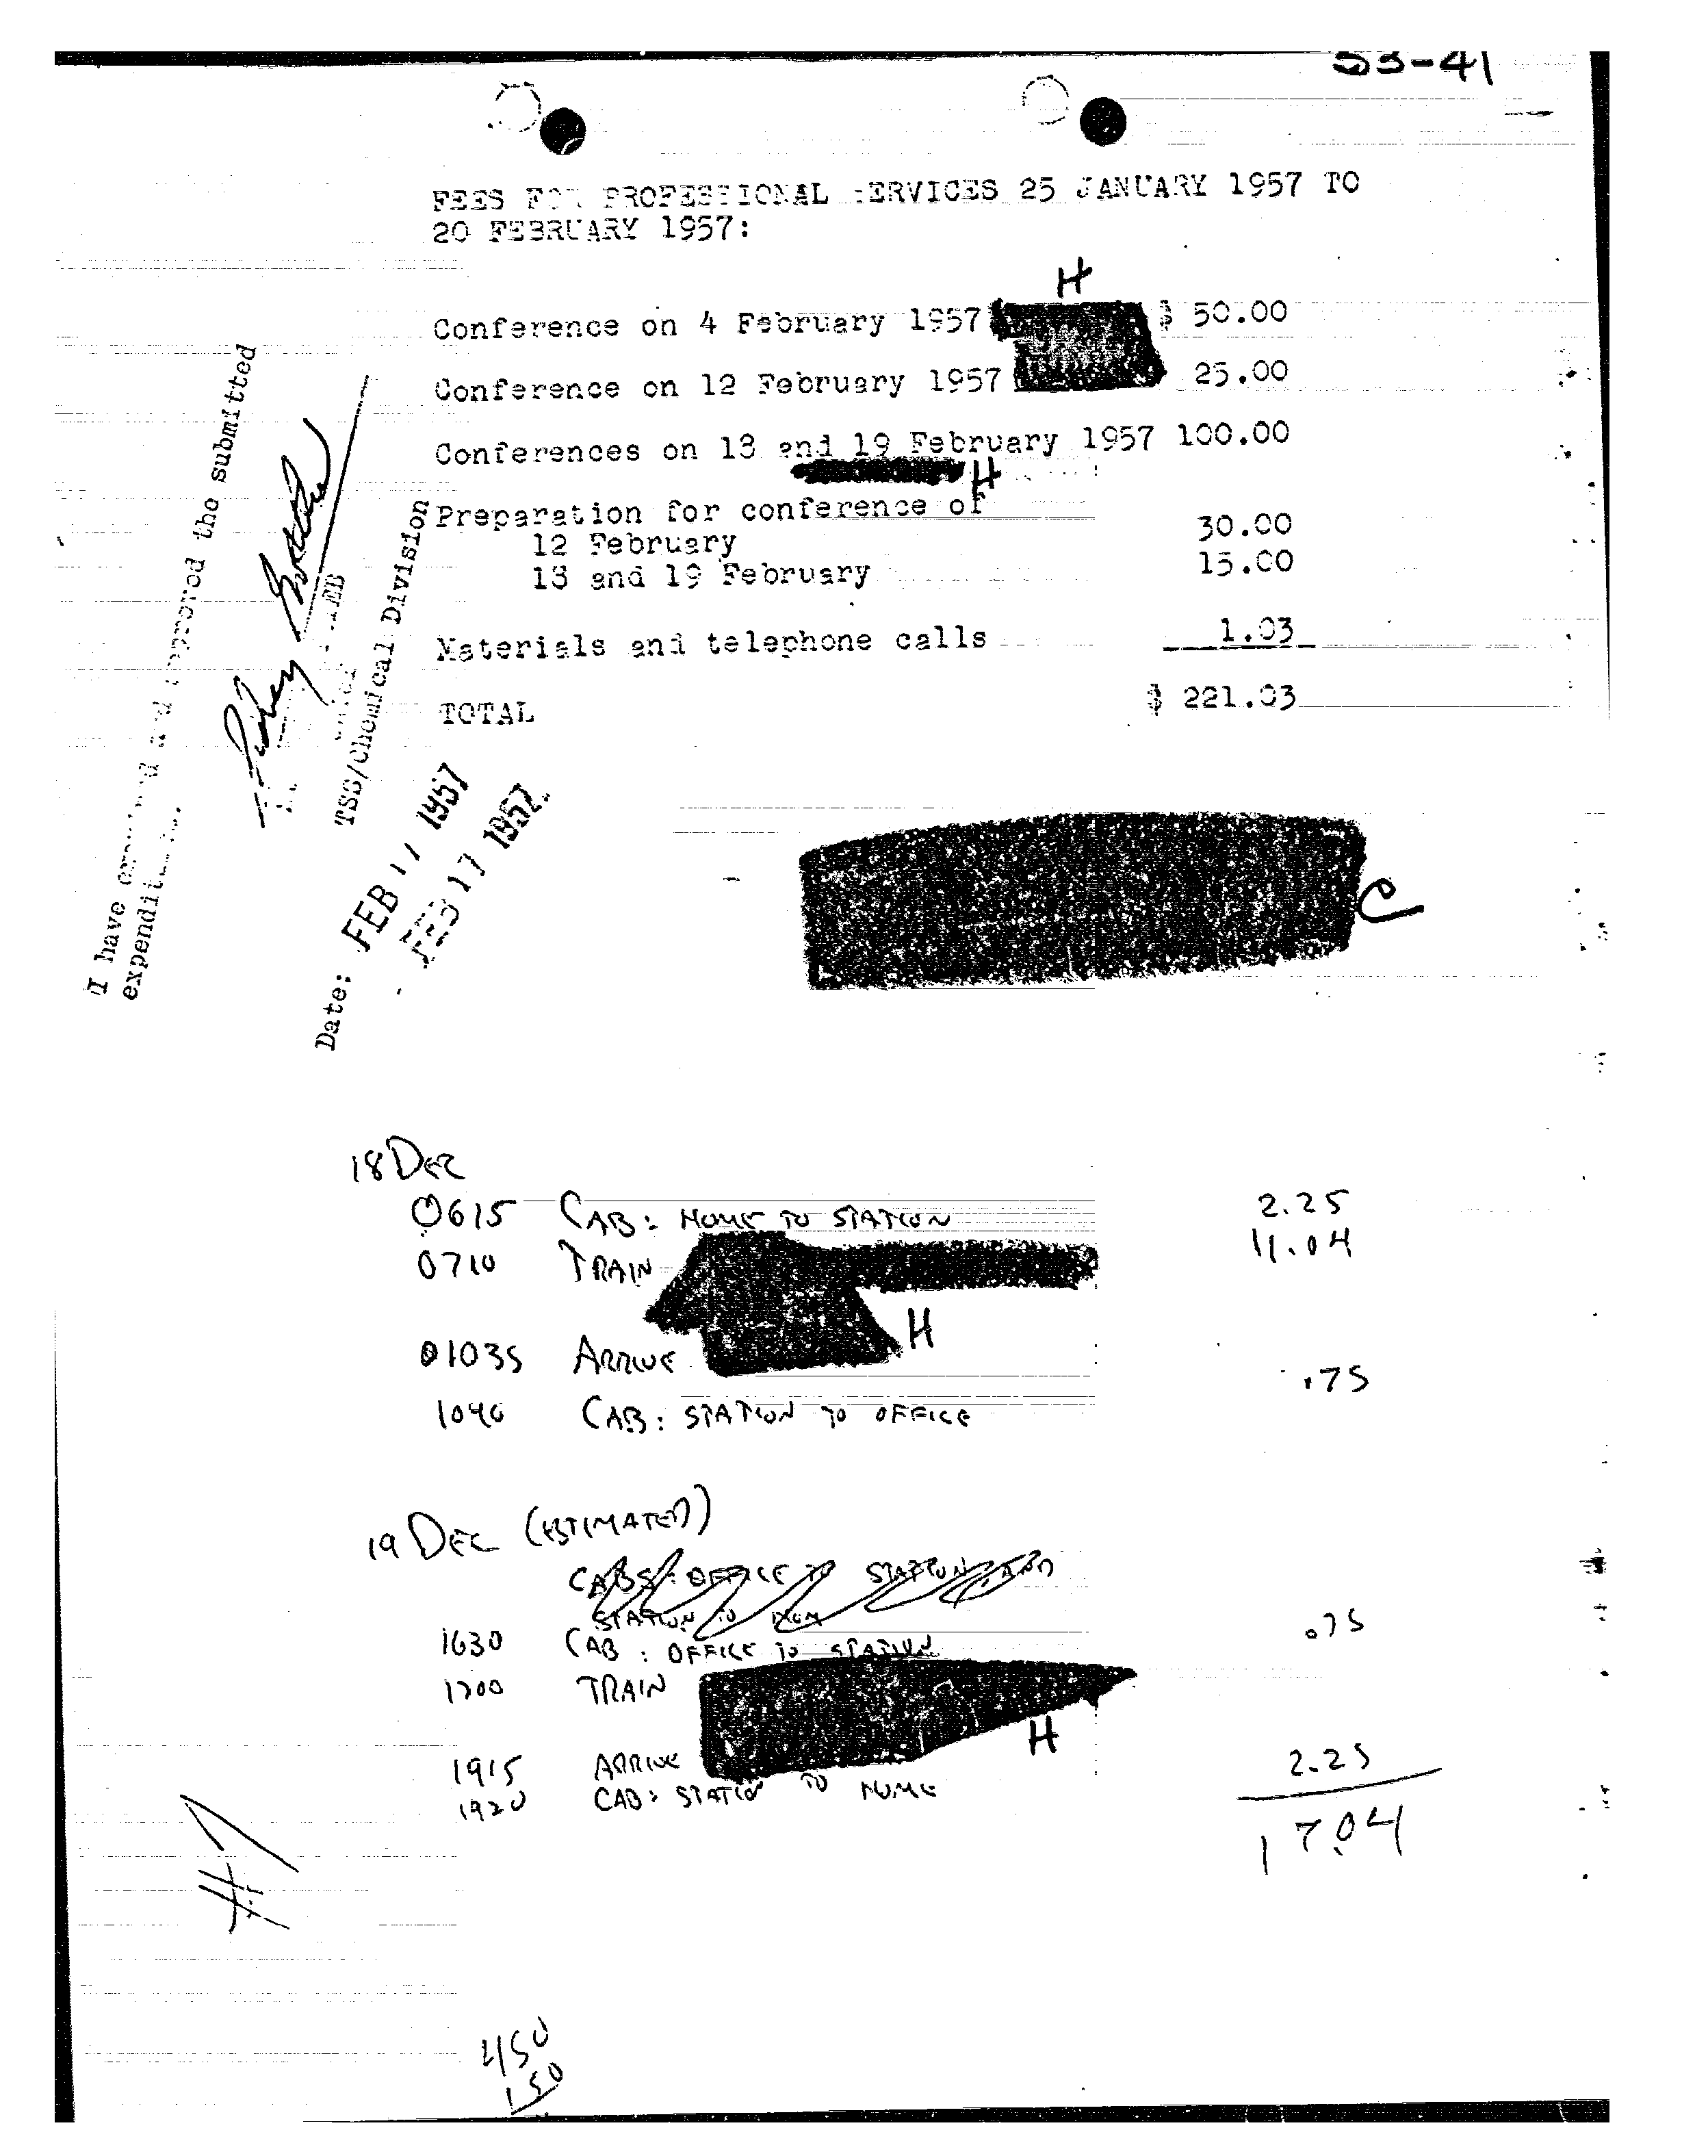 53-41
FEES FOR PROFESSIONAL SERVICES 25 JANUARY 1957 TO
20 FEBRUARY 1957:
H
Conference on 4 February 1957 $ 50.00
Conference on 12 February 1957 25.00
Conferences on 18 and 19 February 1957 100.00
H
Preparation for conference of
12 February 30.00
18 and 19 February 15.00
Materials and telephone calls 1.03
TOTAL $ 221.03
I have and approved the submitted
TSS/Chemical Division
Date: FEB 17 1957
FEB 17 1957
C
18 DEC
0615 CAB: HOME TO STATION 2.25
0710 TRAIN 11.04
H
01035 ARRIVE
.75
1040 CAB: STATION TO OFFICE
19 DEC (ESTIMATED)
CABS: OFFICE TO STATION AND
STATION TO
1630 CAB: OFFICE TO STATION .75
1700 TRAIN
H
1915 ARRIVE
1920 CAB: STATION TO HOME 2.25
17.04
#7
450
150